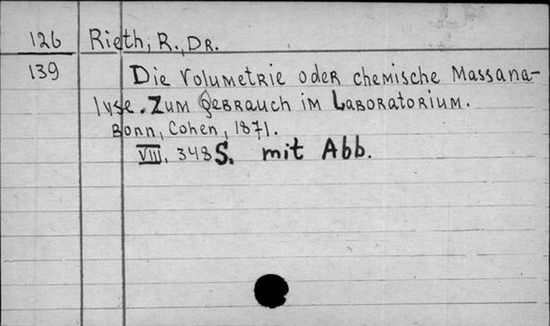 126 Rieth, R., Dr.
139 Die Volumetrie oder chemische Massana-
lyse. Zum Gebrauch im Laboratorium.
Bonn, Cohen, 1871.
VIII, 348 S. mit Abb.